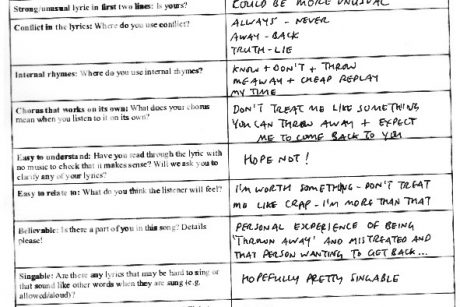 Strong/unusual lyric in first two lines: Is yours?
COULD BE MORE UNUSUAL
Conflict in the lyrics: Where do you use conflict?
ALWAYS - NEVER
AWAY - BACK
TRUTH - LIE
Internal rhymes: Where do you use internal rhymes?
KNOW + DON'T + THROW
ME AWAY + CHEAP REPLAY
MY TIME
Chorus that works on its own: What does your chorus
mean when you listen to it on its own?
DON'T TREAT ME LIKE SOMETHING
YOU CAN THROW AWAY + EXPECT
ME TO COME BACK TO YOU
Easy to understand: Have you read through the lyric with
no music to check that it makes sense? Will we ask you to
clarify any of your lyrics?
HOPE NOT!
Easy to relate to: What do you think the listener will feel?
I'M WORTH SOMETHING - DON'T TREAT
ME LIKE CRAP - I'M MORE THAN THAT
Believable: Is there a part of you in this song? Details
please!
PERSONAL EXPERIENCE OF BEING
'THROWN AWAY' AND MISTREATED AND
THAT PERSON WANTING TO GET BACK...
Singable: Are there any lyrics that may be hard to sing or
that sound like other words when they are sung (e.g.
allowed/aloud)?
HOPEFULLY PRETTY SINGABLE